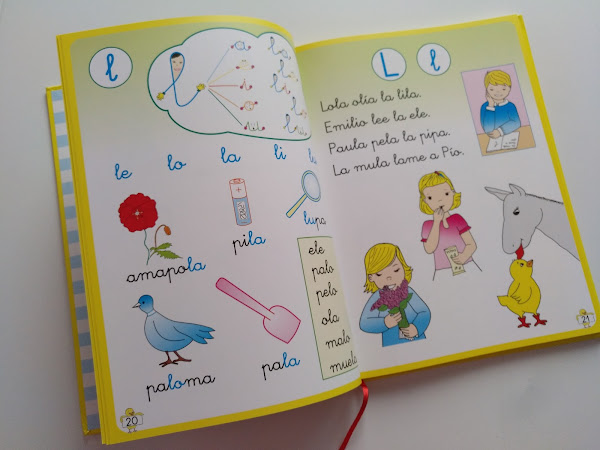 l
le lo la li
amapola
pila
lupa
paloma
pala
ele
palo
pelo
ola
malo
muela
20
L l
Lola olía la lila.
Emilio lee la ele.
Paula pela la pipa.
La mula lame a Pío.
21